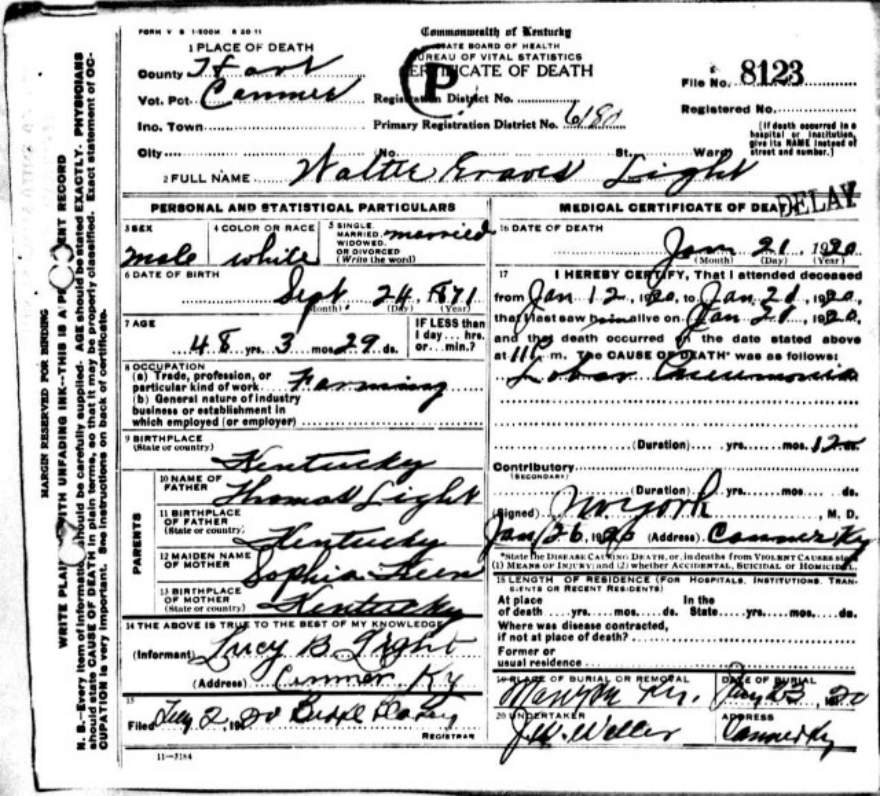 FORM V S 1-500M 8 20-11
Commonwealth of Kentucky
STATE BOARD OF HEALTH
BUREAU OF VITAL STATISTICS
CERTIFICATE OF DEATH
P
1 PLACE OF DEATH
County Hart
Vot. Pct. Canmer
Inc. Town
City No. St. Ward
Registration District No.
Primary Registration District No. 6180
File No. 8123
Registered No.
(If death occurred in a hospital or institution, give its NAME instead of street and number.)
2 FULL NAME Walter Graves Light
DELAY
PERSONAL AND STATISTICAL PARTICULARS
3 SEX male
4 COLOR OR RACE white
5 SINGLE, MARRIED, WIDOWED, OR DIVORCED (Write the word) married
6 DATE OF BIRTH
Sept. 24, 1871
(Month) (Day) (Year)
7 AGE
48 yrs. 3 mos. 29 ds.
IF LESS than 1 day... hrs. or... min.?
8 OCCUPATION
(a) Trade, profession, or particular kind of work Farming
(b) General nature of industry
business or establishment in
which employed (or employer)
9 BIRTHPLACE
(State or country)
Kentucky
PARENTS
10 NAME OF FATHER Thomas Light
11 BIRTHPLACE OF FATHER (State or country) Kentucky
12 MAIDEN NAME OF MOTHER Sophia
13 BIRTHPLACE OF MOTHER (State or country) Kentucky
14 THE ABOVE IS TRUE TO THE BEST OF MY KNOWLEDGE
(Informant) Lucy B Light
(Address) Canmer Ky
15
Filed 2, 1920
REGISTRAR
11-3184
MEDICAL CERTIFICATE OF DEATH
16 DATE OF DEATH
Jan 21 1920
(Month) (Day) (Year)
17 I HEREBY CERTIFY, That I attended deceased
from Jan 12, 1920, to Jan 21, 1920,
that I last saw him alive on Jan 21, 1920,
and that death occurred on the date stated above
at m. The CAUSE OF DEATH* was as follows:
Lobar Pneumonia
(Duration) yrs. mos. 12 ds.
Contributory
(SECONDARY)
(Duration) yrs. mos. ds.
(Signed) York, M. D.
Jan 26, 1920 (Address) Canmer Ky
*State the DISEASE CAUSING DEATH, or, in deaths from VIOLENT CAUSES state
(1) MEANS OF INJURY; and (2) whether ACCIDENTAL, SUICIDAL or HOMICIDAL.
18 LENGTH OF RESIDENCE (FOR HOSPITALS, INSTITUTIONS, TRANSIENTS OR RECENT RESIDENTS)
At place of death yrs. mos. ds. In the State yrs. mos. ds.
Where was disease contracted,
if not at place of death?
Former or
usual residence
19 PLACE OF BURIAL OR REMOVAL
DATE OF BURIAL
23, 1920
20 UNDERTAKER
J.W. Weller
ADDRESS
Canmer Ky
MARGIN RESERVED FOR BINDING
WRITE PLAINLY WITH UNFADING INK--THIS IS A PERMANENT RECORD
N. B.--Every item of information should be carefully supplied. AGE should be stated EXACTLY. PHYSICIANS
should state CAUSE OF DEATH in plain terms, so that it may be properly classified. Exact statement of OC-
CUPATION is very important. See instructions on back of certificate.